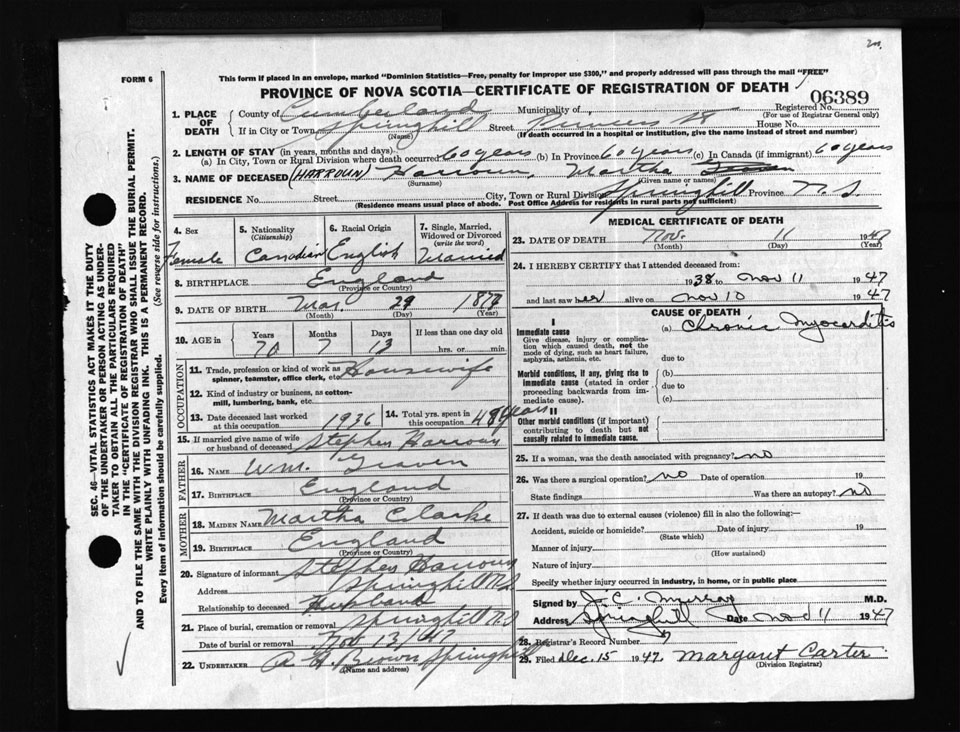 2m.
FORM 6
This form if placed in an envelope, marked "Dominion Statistics—Free, penalty for improper use $300," and properly addressed will pass through the mail "FREE"
PROVINCE OF NOVA SCOTIA—CERTIFICATE OF REGISTRATION OF DEATH
06389
Registered No.
(For use of Registrar General only)
1. PLACE OF DEATH
County of Cumberland Municipality of
If in City or Town Springhill Street Princess St House No.
(Name) (If death occurred in a hospital or institution, give the name instead of street and number)
2. LENGTH OF STAY (in years, months and days)—
(a) In City, Town or Rural Division where death occurred 60 years (b) In Province 60 years (c) In Canada (if immigrant) 60 years
3. NAME OF DECEASED (HARROUN) Harroun, Martha
(Surname) (Given name or names)
RESIDENCE No. Street City, Town or Rural Division Springhill Province N.S
(Residence means usual place of abode. Post Office Address for residents in rural parts not sufficient)
4. Sex
Female
5. Nationality
(Citizenship)
Canadian
6. Racial Origin
English
7. Single, Married, Widowed or Divorced
(write the word)
Married
8. BIRTHPLACE England
(Province or Country)
9. DATE OF BIRTH Mar. 29 187
(Month) (Day) (Year)
10. AGE in
Years Months Days If less than one day old
70 7 13 hrs. or min.
OCCUPATION
11. Trade, profession or kind of work as spinner, teamster, office clerk, etc. Housewife
12. Kind of industry or business, as cotton-mill, lumbering, bank, etc.
13. Date deceased last worked at this occupation 1936
14. Total yrs. spent in this occupation 48 years
15. If married give name of wife or husband of deceased Stephen Harroun
FATHER
16. NAME Wm. Graven
17. BIRTHPLACE England
(Province or Country)
MOTHER
18. MAIDEN NAME Martha Clarke
19. BIRTHPLACE England
(Province or Country)
20. Signature of informant Stephen Harroun
Address Springhill N.S.
Relationship to deceased Husband
21. Place of burial, cremation or removal Springhill N.S
Date of burial or removal 13/1947
22. UNDERTAKER A. H. Brown Springhill
(Name and address)
MEDICAL CERTIFICATE OF DEATH
23. DATE OF DEATH Nov. 11 1947
(Month) (Day) (Year)
24. I HEREBY CERTIFY that I attended deceased from:
1938 to Nov 11 1947
and last saw her alive on Nov 10 1947
CAUSE OF DEATH
I
Immediate cause
Give disease, injury or complication which caused death, not the mode of dying, such as heart failure, asphyxia, asthenia, etc.
(a) Chronic Myocarditis
due to
Morbid conditions, if any, giving rise to immediate cause (stated in order proceeding backwards from immediate cause).
(b)
due to
(c)
II
Other morbid conditions (if important) contributing to death but not causally related to immediate cause.
25. If a woman, was the death associated with pregnancy? no
26. Was there a surgical operation? no Date of operation 19
State findings Was there an autopsy? no
27. If death was due to external causes (violence) fill in also the following:—
Accident, suicide or homicide? Date of injury 19
(State which)
Manner of injury
(How sustained)
Nature of injury
Specify whether injury occurred in industry, in home, or in public place
Signed by J. C. Murray M.D.
Address Springhill Date Nov 11 1947
28. Registrar's Record Number
29. Filed Dec. 15 1947. Margaret Carter
(Division Registrar)
SEC. 46—VITAL STATISTICS ACT MAKES IT THE DUTY
OF THE UNDERTAKER OR PERSON ACTING AS UNDER-
TAKER TO OBTAIN ALL THE PARTICULARS REQUIRED
IN THE "CERTIFICATE OF REGISTRATION OF DEATH"
AND TO FILE THE SAME WITH THE DIVISION REGISTRAR WHO SHALL ISSUE THE BURIAL PERMIT.
WRITE PLAINLY WITH UNFADING INK. THIS IS A PERMANENT RECORD.
Every item of information should be carefully supplied. (See reverse side for instructions.)